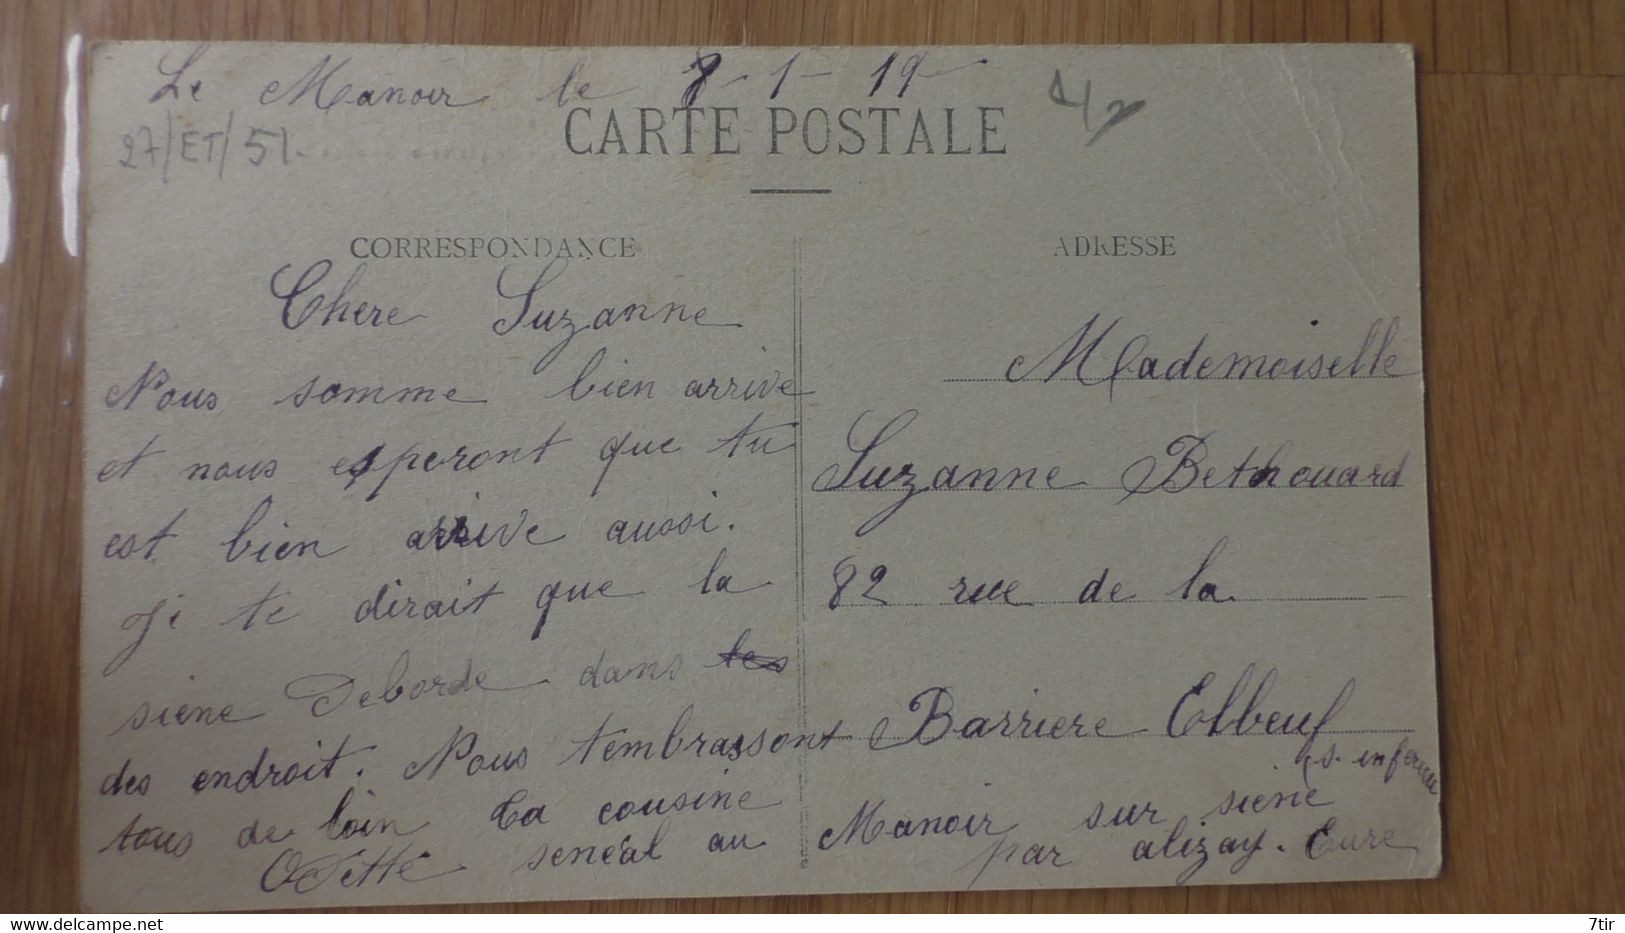 Le Manoir le 8-1-19
27/ET/51
CARTE POSTALE
CORRESPONDANCE
Chere Suzanne
Nous somme bien arrive
et nous esperont que tu
est bien arrive aussi.
Ji te dirait que la
siene Deborde dans les
des endroit. Nous tembrassont
tous de loin ta cousine
Odette senéal au Manoir sur siene
par alizay. Eure
ADRESSE
Mademoiselle
Suzanne Bethouard
82 rue de la
Barriere Elbeuf
s. inferieu
delcampe.net
7tir